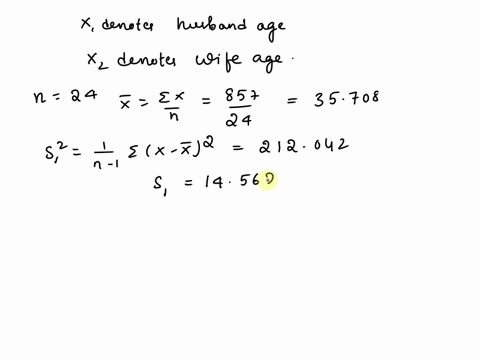 x₁ denotes husband age
x₂ denotes wife age.
n = 24 x̄ = Σx/n = 857/24 = 35.708
S₁² = 1/(n-1) Σ(x-x̄)² = 212.042
S₁ = 14.562